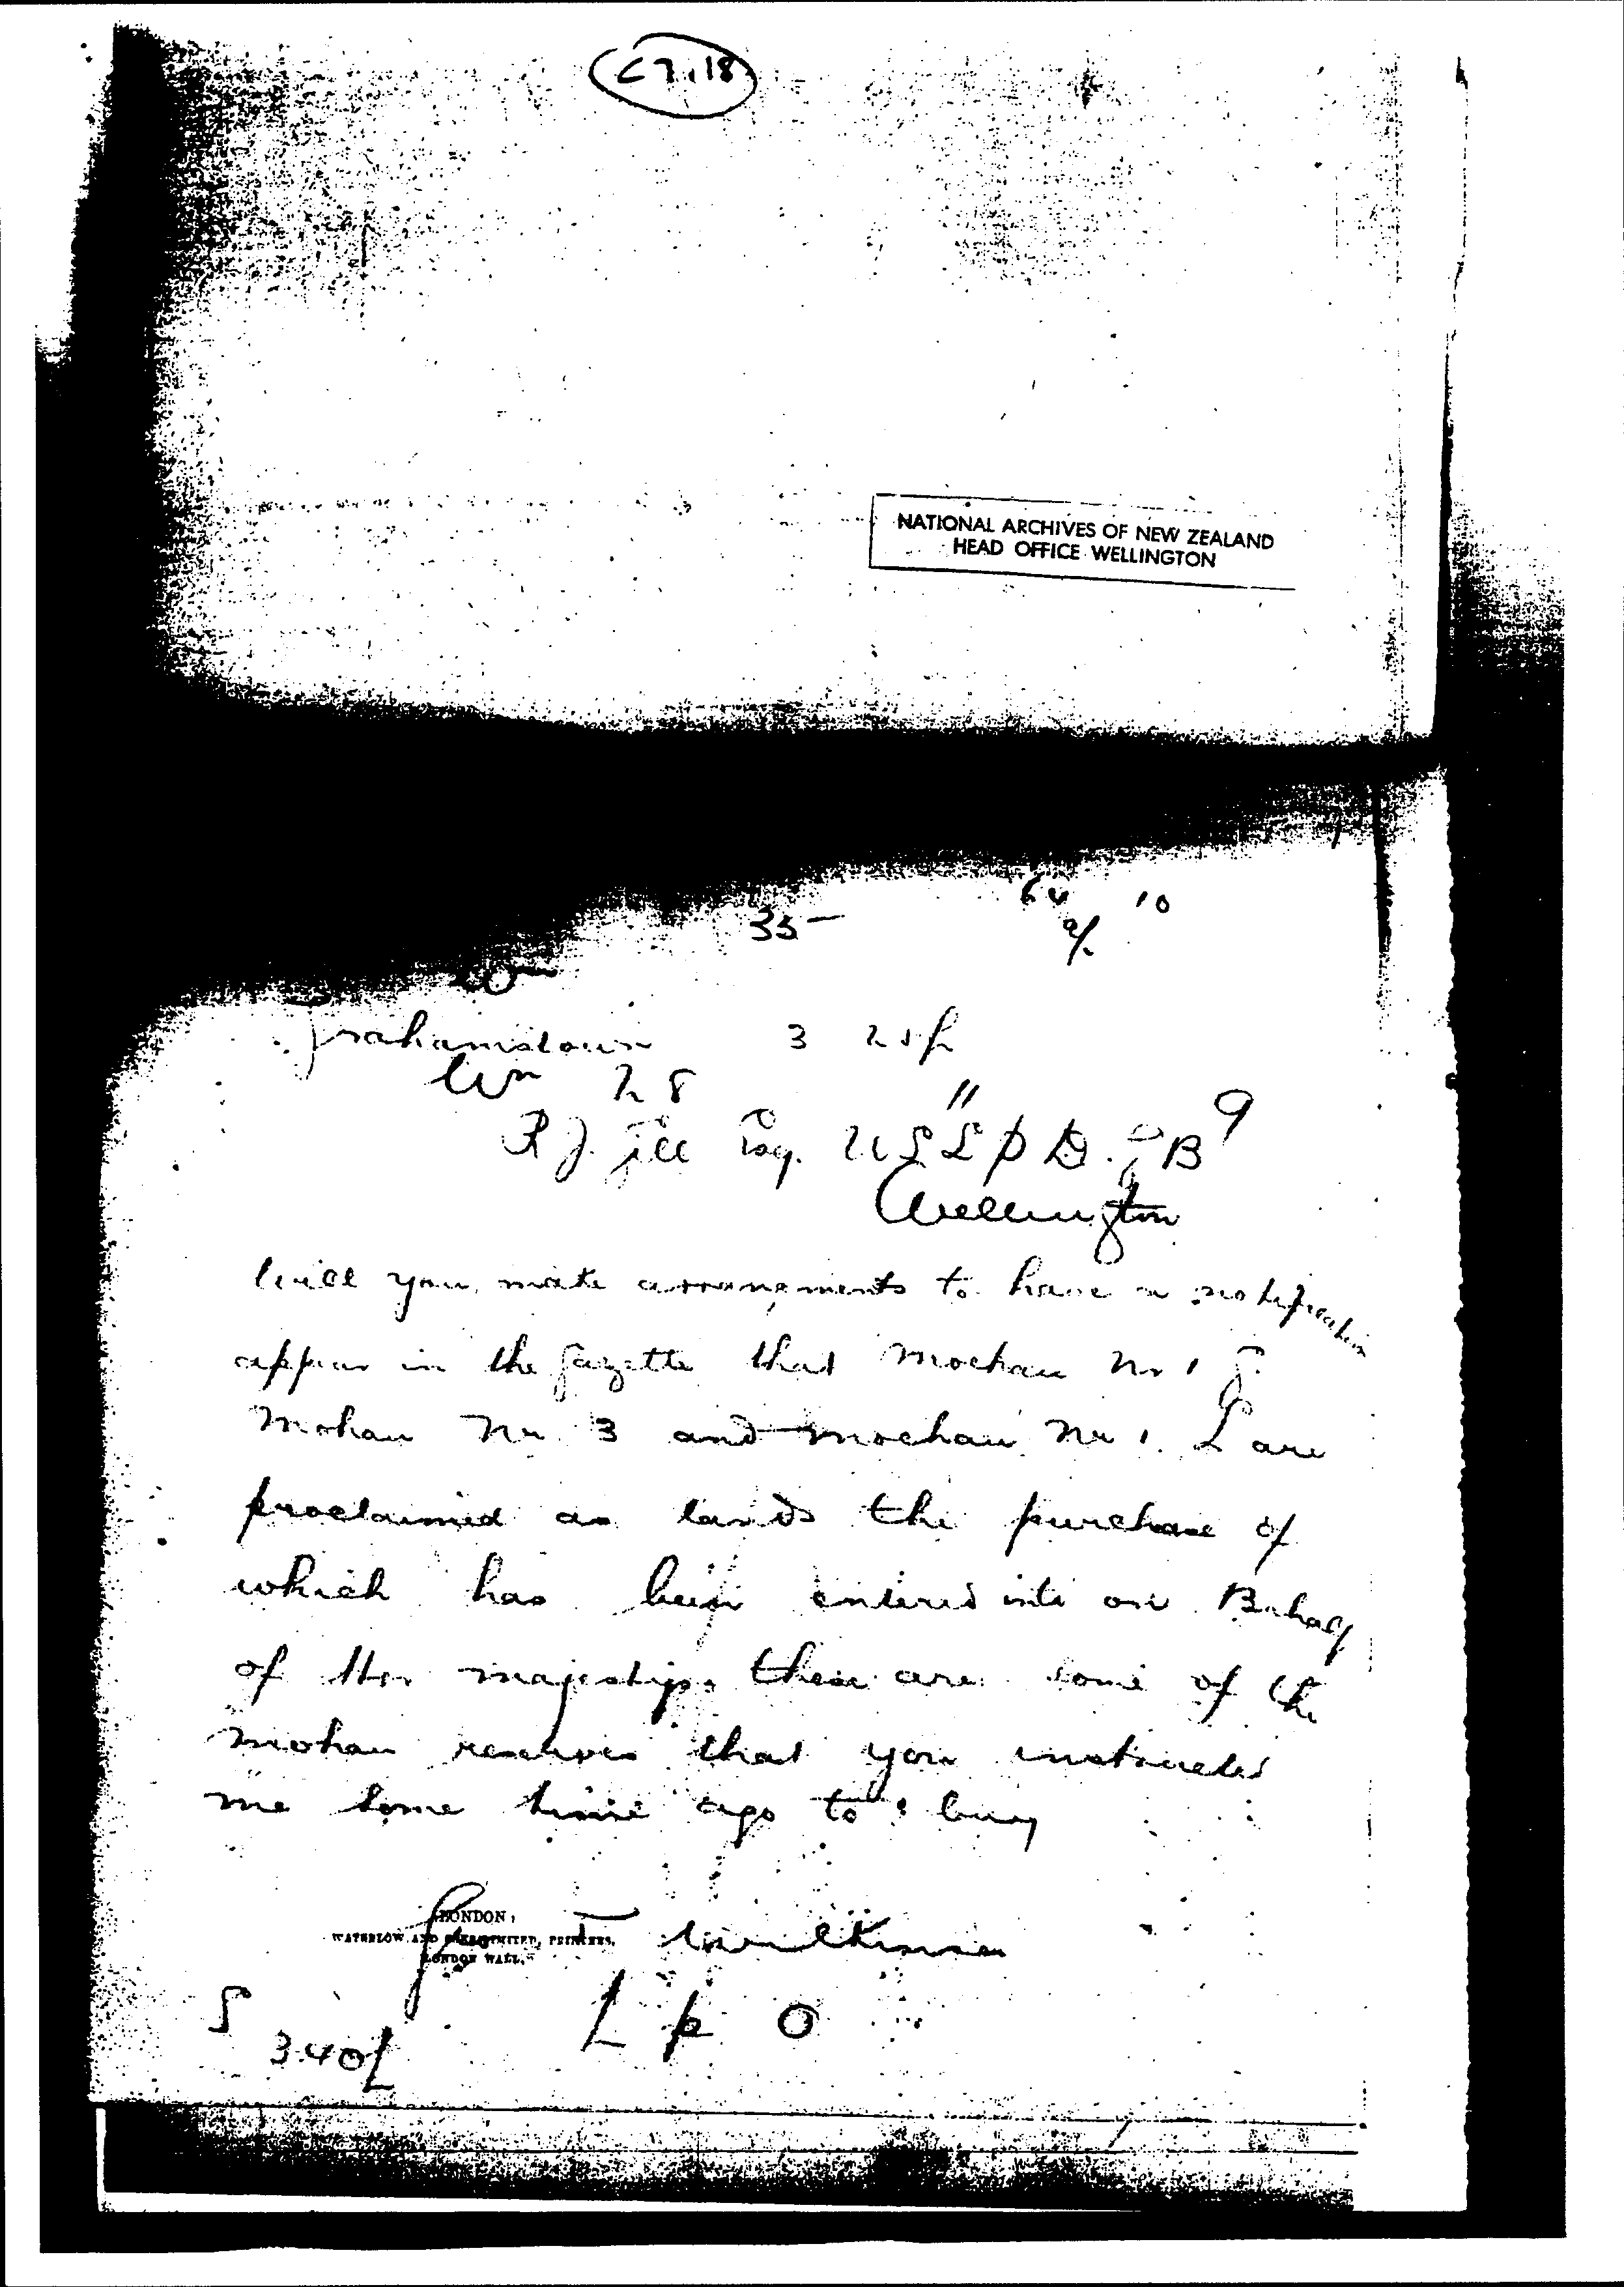 C7.18
NATIONAL ARCHIVES OF NEW ZEALAND
HEAD OFFICE WELLINGTON
35
10
Grahamstown 3 25p
Wn 28
R J. Gill Esq. U S L P D. B 9
Wellington
Will you make arrangments to have a notification
appear in the gazette that Moehau No 1 J.
Mohau No 3 and Moehau No 1. L are
proclaimed as lands the purchase of
which has been entered into on Behalf
of Her majesty, these are some of the
mohau reserves that you instructed
me some time ago to buy
LONDON:
WATERLOW AND SONS LIMITED, PRINTERS,
LONDON WALL.
G T Wilkinson
L p O
S
3.40p